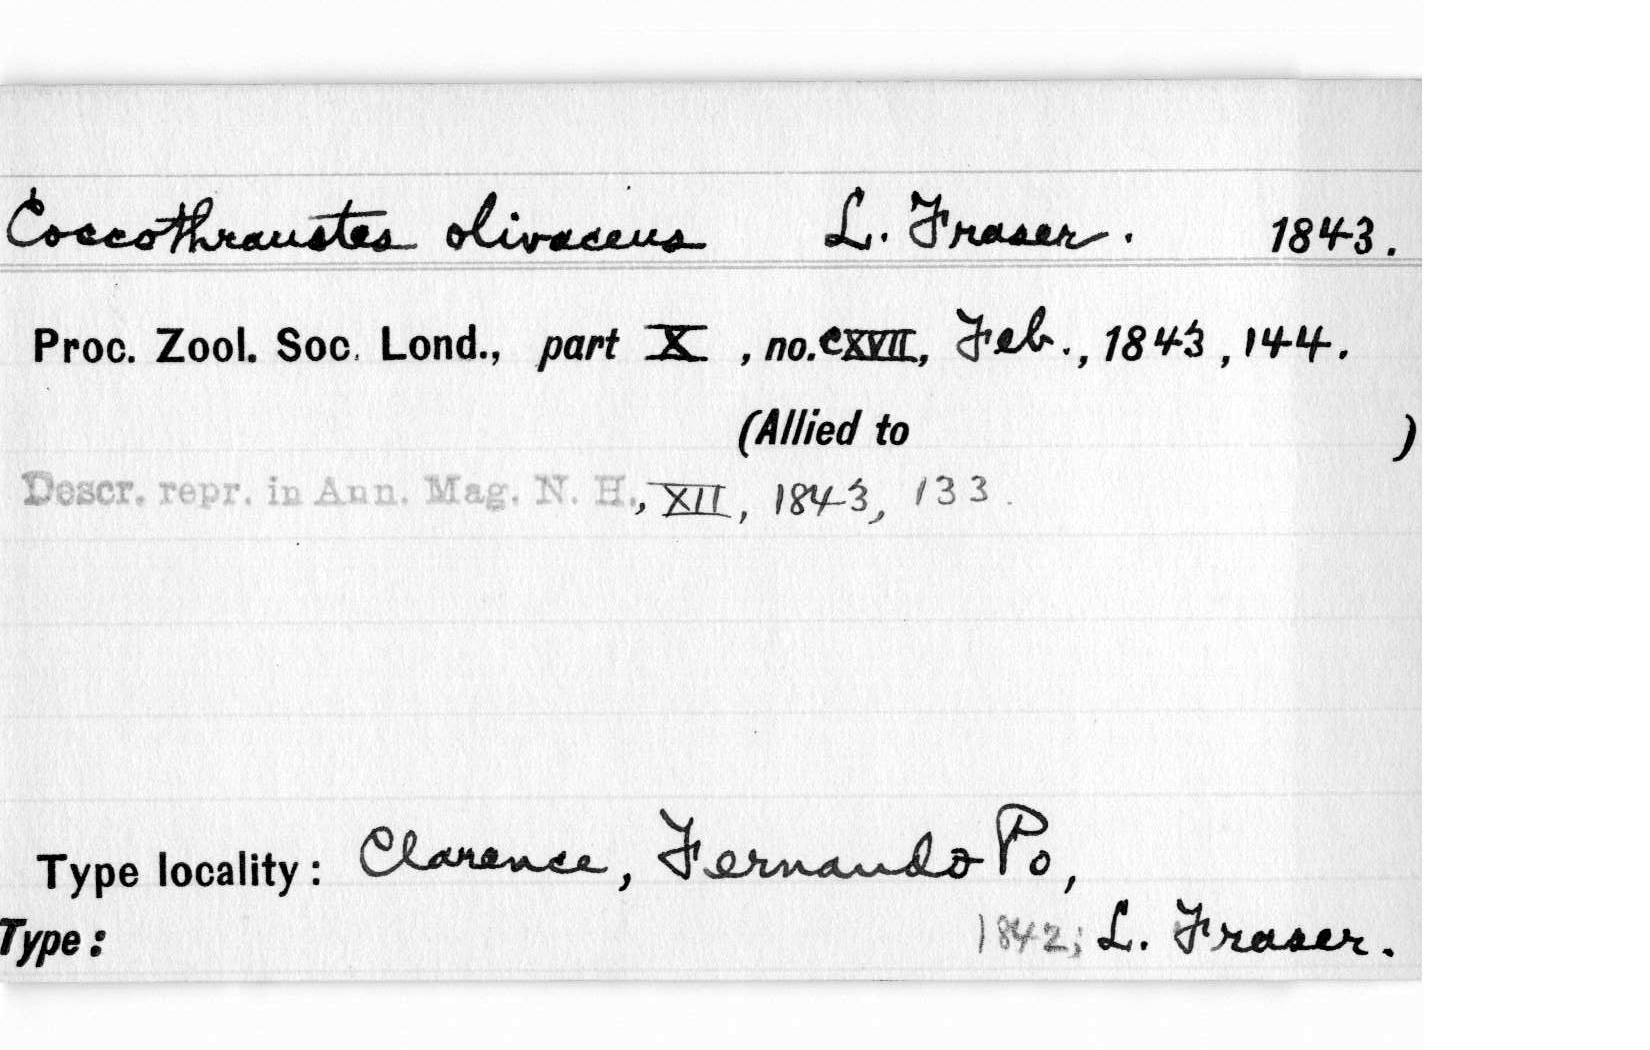 Coccothraustes olivaceus L. Fraser. 1843.
Proc. Zool. Soc. Lond., part X, no. CXVII, Feb., 1843, 144.
(Allied to )
Descr. repr. in Ann. Mag. N. H., XII, 1843, 133.
Type locality: Clarence, Fernando Po,
Type: 1842; L. Fraser.